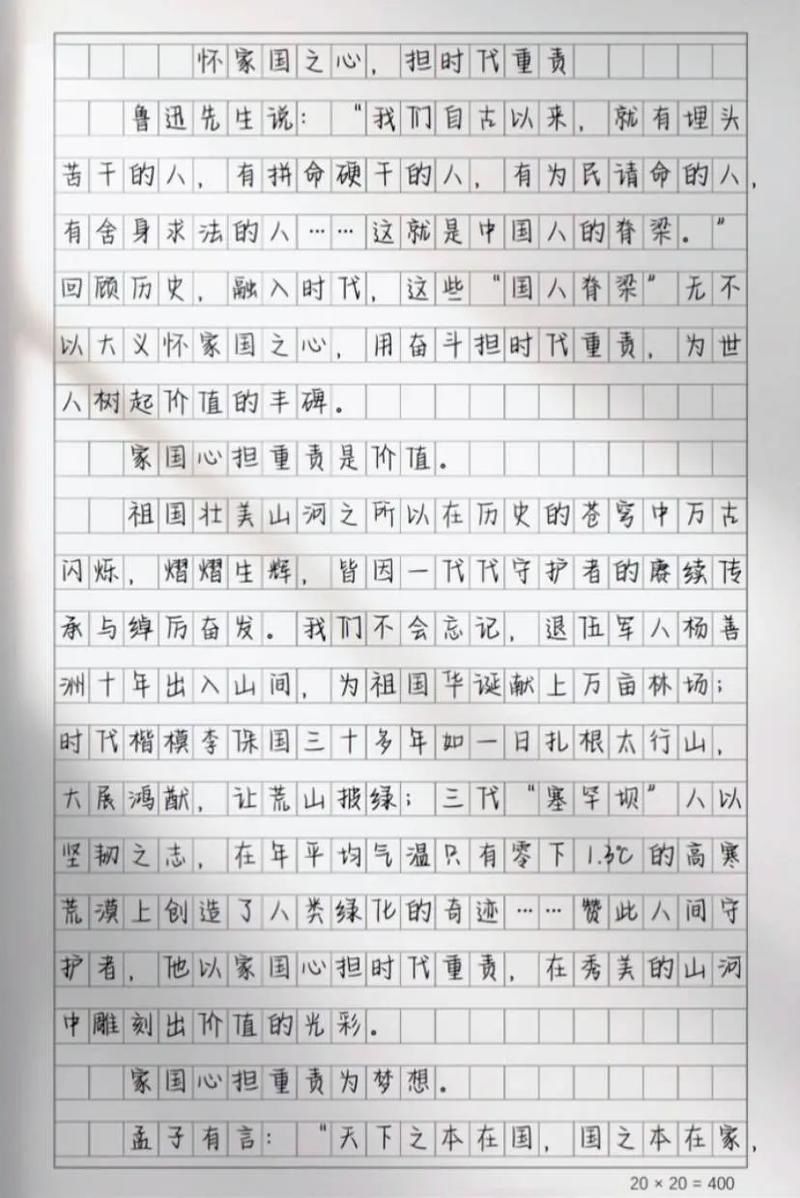 怀家国之心，担时代重责
鲁迅先生说：“我们自古以来，就有埋头
苦干的人，有拼命硬干的人，有为民请命的人，
有舍身求法的人……这就是中国人的脊梁。”
回顾历史，融入时代，这些“国人脊梁”无不
以大义怀家国之心，用奋斗担时代重责，为世
人树起价值的丰碑。
家国心担重责是价值。
祖国壮美山河之所以在历史的苍穹中万古
闪烁，熠熠生辉，皆因一代代守护者的赓续传
承与绰厉奋发。我们不会忘记，退伍军人杨善
洲十年出入山间，为祖国华诞献上万亩林场；
时代楷模李保国三十多年如一日扎根太行山，
大展鸿猷，让荒山披绿；三代“塞罕坝”人以
坚韧之志，在年平均气温只有零下1.3℃的高寒
荒漠上创造了人类绿化的奇迹……赞此人间守
护者，他以家国心担时代重责，在秀美的山河
中雕刻出价值的光彩。
家国心担重责为梦想。
孟子有言：“天下之本在国，国之本在家，
20×20=400